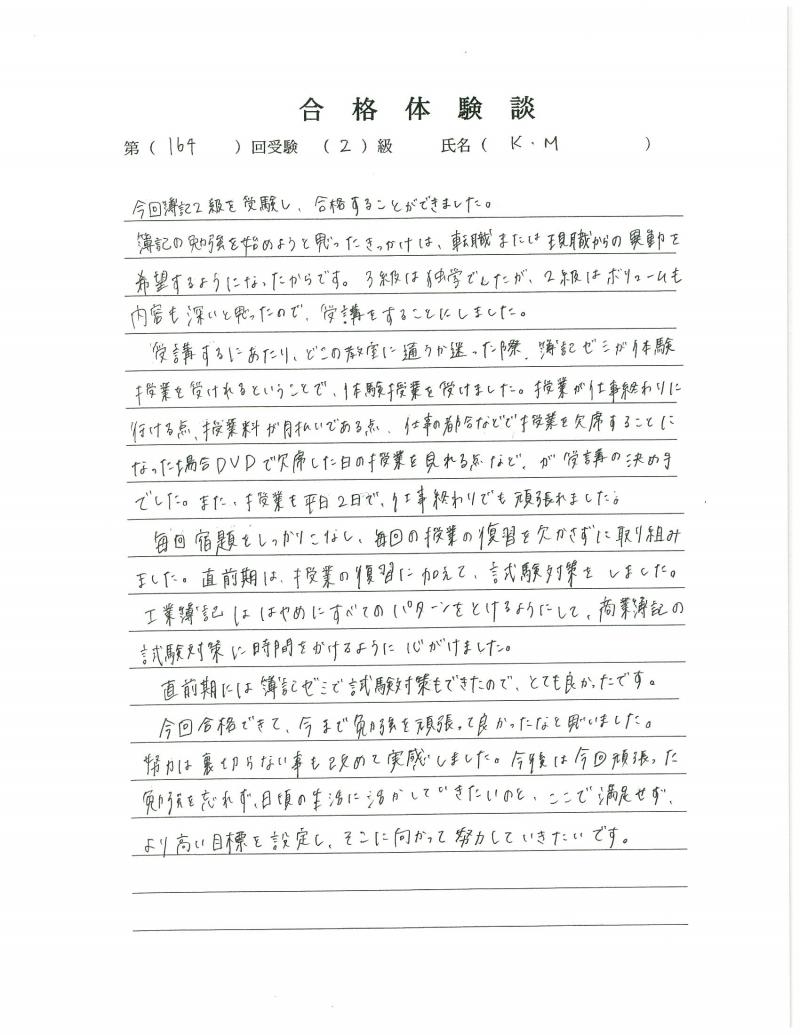 合格体験談
第（164）回受験（2）級 氏名（K．M）
今回簿記2級を受験し、合格することができました。
簿記の勉強を始めようと思ったきっかけは、転職または現職からの異動を
希望するようになったからです。3級は独学でしたが、2級はボリュームも
内容も深いと思ったので、受講をすることにしました。
受講するにあたり、どこの教室に通うか迷った際、簿記ゼミが体験
授業を受けれるということで、体験授業を受けました。授業が仕事終わりに
行ける点、授業料が月払いである点、仕事の都合などで授業を欠席することに
なった場合DVDで欠席した日の授業を見れる点など、が受講の決め手
でした。また、授業も平日2日で、仕事終わりでも頑張れました。
毎回宿題をしっかりこなし、毎回の授業の復習を欠かさずに取り組み
ました。直前期は、授業の復習に加えて、試験対策をしました。
工業簿記ははやめにすべてのパターンをとけるようにして、商業簿記の
試験対策に時間をかけるように心がけました。
直前期には簿記ゼミで試験対策もできたので、とても良かったです。
今回合格できて、今まで勉強を頑張って良かったなと思いました。
努力は裏切らない事も改めて実感しました。今後は今回頑張った
勉強を忘れず、日頃の生活に活かしていきたいのと、ここで満足せず、
より高い目標を設定し、そこに向かって努力していきたいです。